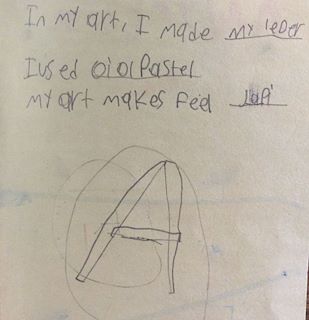 In my art, I made my leDer
I used oiolPastel
my art makes Feel
A